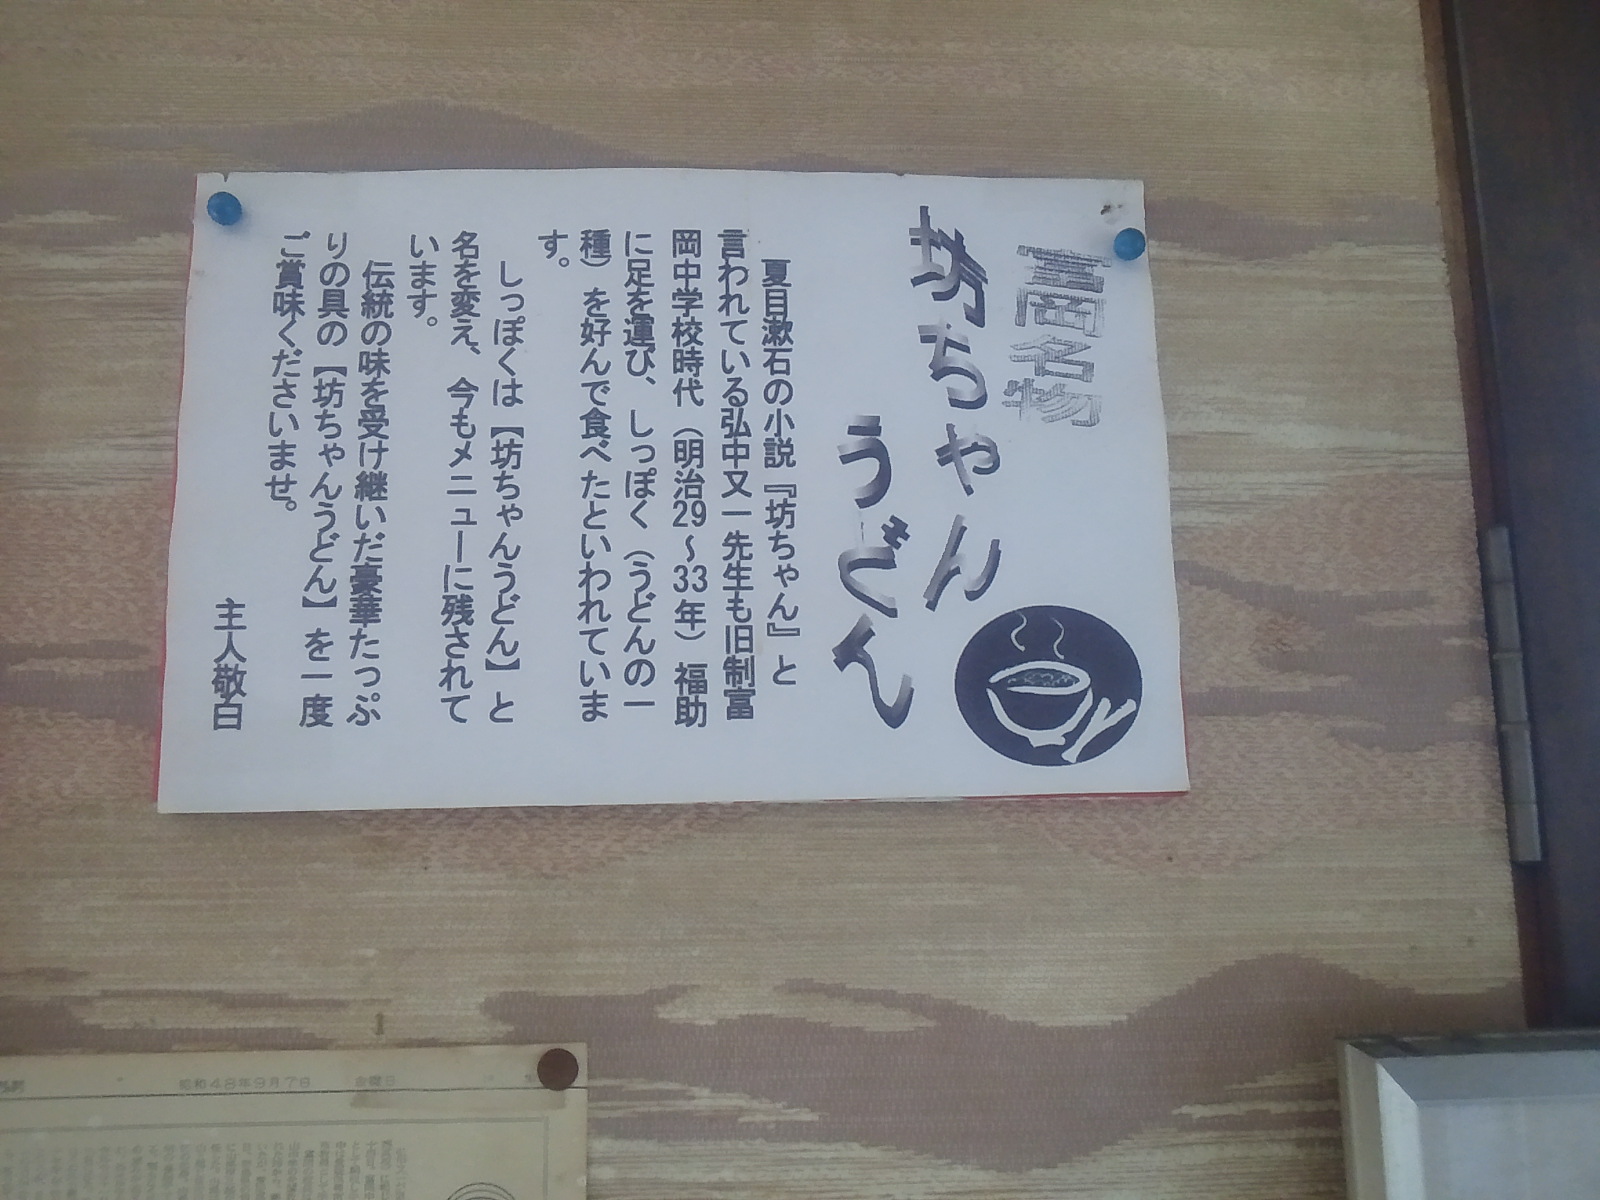 富岡名物
坊ちゃん
うどん
夏目漱石の小説『坊ちゃん』と
言われている弘中又一先生も旧制富
岡中学校時代（明治29～33年）福助
に足を運び、しっぽく（うどんの一
種）を好んで食べたといわれていま
す。
しっぽくは【坊ちゃんうどん】と
名を変え、今もメニューに残されて
います。
伝統の味を受け継いだ豪華たっぷ
りの具の【坊ちゃんうどん】を一度
ご賞味くださいませ。
主人敬白
昭和48年9月7日 金曜日